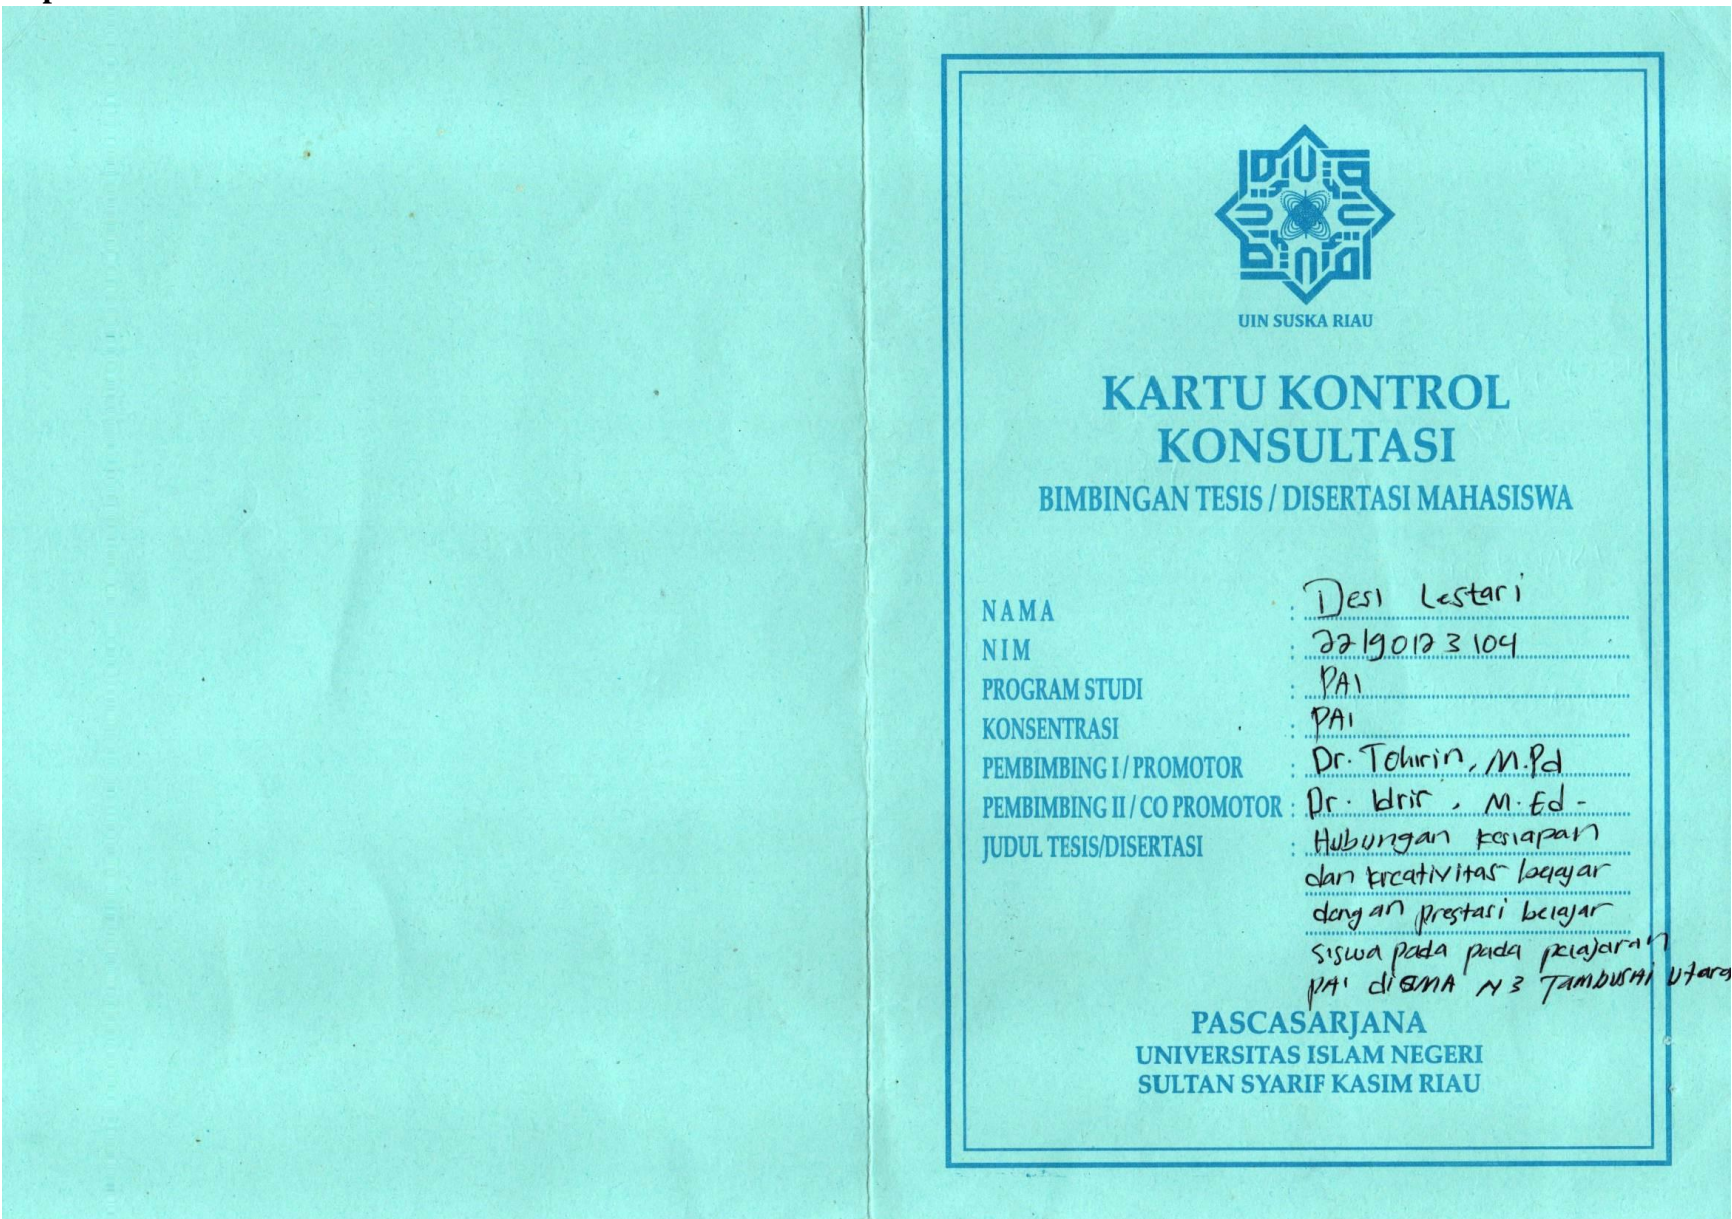 UIN SUSKA RIAU
KARTU KONTROL
KONSULTASI
BIMBINGAN TESIS / DISERTASI MAHASISWA
NAMA : Desi Lestari
NIM : 22190123104
PROGRAM STUDI : PAI
KONSENTRASI : PAI
PEMBIMBING I / PROMOTOR : Dr. Tohirin, M.Pd
PEMBIMBING II / CO PROMOTOR : Dr. Idris, M.Ed -
JUDUL TESIS/DISERTASI : Hubungan kesiapan
dan kreativitas belajar
dengan prestasi belajar
siswa pada pada pelajaran
PAI di SMA N 3 Tambusai Utara
PASCASARJANA
UNIVERSITAS ISLAM NEGERI
SULTAN SYARIF KASIM RIAU